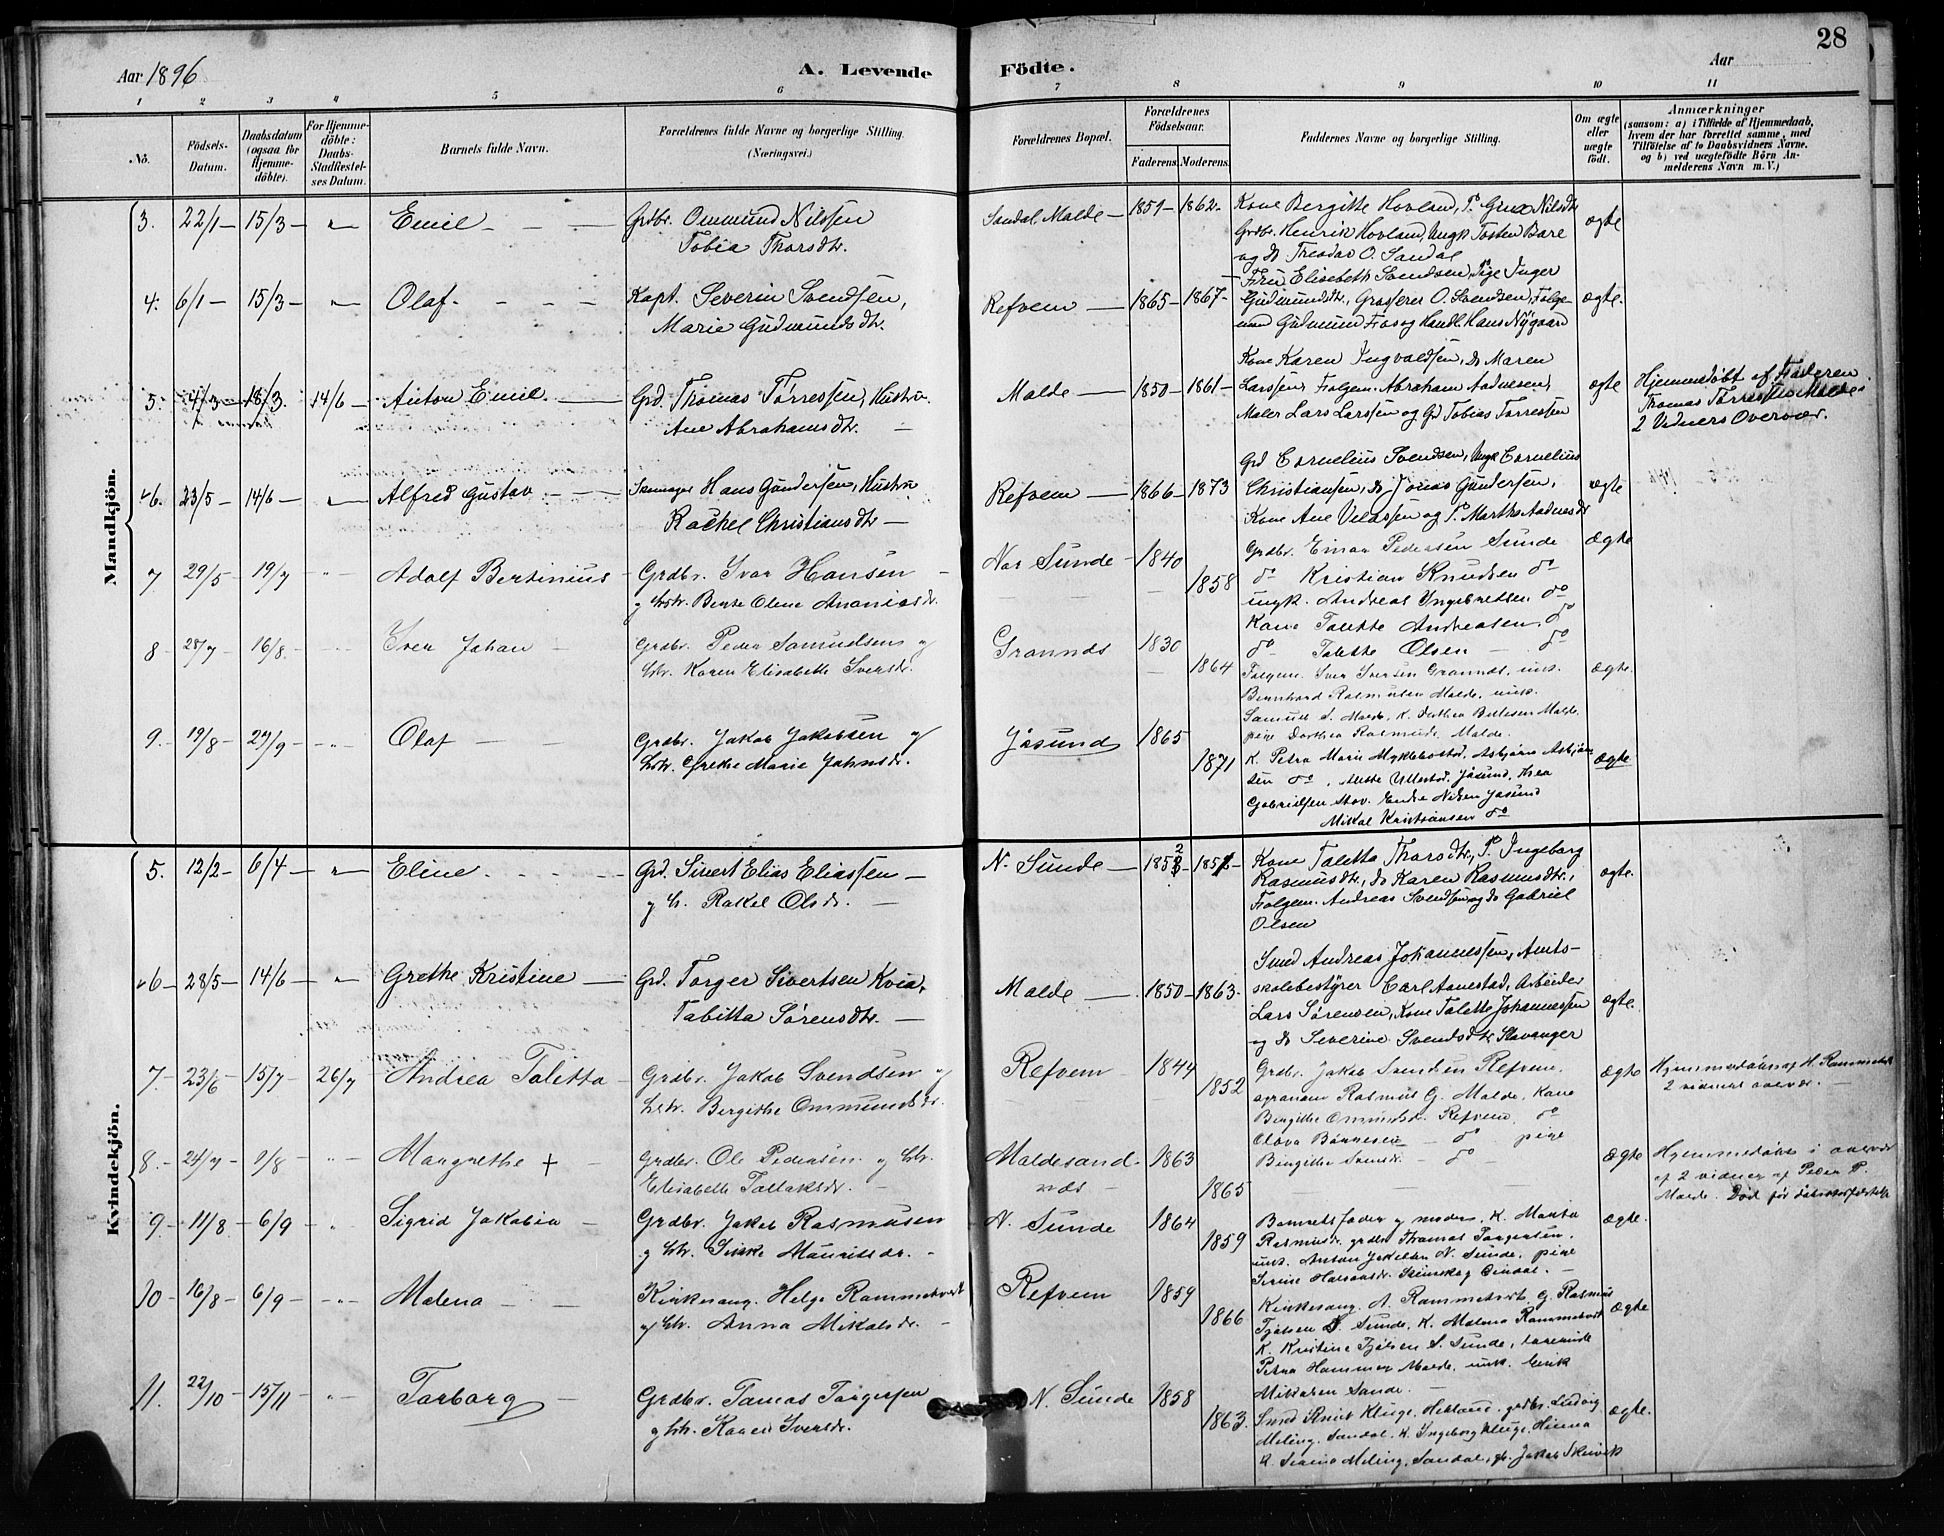 28
Aar 1896
A. Levende
Födte.
Aar
1 2 3 4 5 6 7 8 9 10 11
No.
Födsels-Datum.
Daabsdatum (ogsaa for Hjemme-döbte).
For Hjemme-döbte: Daabs-Stadfæstel-ses Datum.
Barnets fulde Navn.
Forældrenes fulde Navne og borgerlige Stilling. (Næringsvei.)
Forældrenes Bopæl.
Forældrenes Födselsaar.
Faderens. Moderens.
Faddernes Navne og borgerlige Stilling.
Om ægte eller uægte födt.
Anmærkninger
(saasom: a) i Tilfælde af Hjemmedaab, hvem der har forrettet samme, med Tilföielse af to Daabsvidners Navne. og b) ved uægtefödte Börn An-melderens Navn m. V.)
Mandkjön.
3. 22/1 — 15/3 — " — Emil — Grdbr. Ommund Nilssen
Tobia Thorsdtr.
Sandal, Malde — 1859 — 1862 —
Kone Bergitte Hovland, P. Nilsdtr
Grdbr. Henrik Hovland, Ungk Tosten Bore
og do Theodor O. Sandal
ægte
4. 6/1 — 15/3 — " — Olaf — Kapt. Severin Svendsen,
Marie Gudmundsdtr.
Refvem — 1865 — 1867 —
Fru Elisabeth Svendsen, Pige Inger
Gudmundsdtr., Grosserer O. Svendsen, Følge-
mand Gudmund Fos og Handl. Hans Nygaard
ægte.
5. 4/3 — 18/3. 14/6 — Anton Emil — Grd. Thomas Tørressen, Hustru
Ane Abrahamsdtr. —
Malde — 1850 — 1861 —
Kone Karen Ingvaldsen, do Maren
Larssen, Folgem. Abraham Aadnesen,
Maler Lars Larssen og Grd Tobias Tørressen
ægte
Hjemmedøbt af Faderen
Thomas Tørressen Malde i
2 Vidners Overvær.
6. 23/5 — 14/6 — " — Alfred Gustav — Hans Gundersen, Hustru
Rachel Christiansdtr —
Refvem — 1866 — 1873
Grd Cornelius Svendsen, Ungk Cornelius
Christiansen, do Jonas Gundersen,
Kone Ane og P. Marthe Aadnesdtr
ægte
7 29/5 — 19/7 " Adolf Bertinius — Grdbr. Ivar Hansen —
og hstr. Berte Oline Ananiasdr.
Nor Sunde — 1840
1858
Grdbr. Einar Pedersen Sunde
do Kristian Knudsen do
ungk. Andreas Ingebretsen do
Kone Talette Andreasen do
do Talette Olsen — do
Ægte
8 28/7 — 16/8. Iver Johan — Grdbr. Peder Samuelsen og
hstr. Karen Elisabethe Iversdr.
Grannds 1830
1864
Folgem. Iver Iversen Grannds, unk.
Bernhard Rasmusen Malde, unk.
Samuel S. Malde, K. Dorthea Malde.
pige Dorthea Rasmusdr. Malde.
ægte.
9. 19/8 — 27/9 — Olaf — Grdbr. Jakob Jakobsen og
hstr. Grethe Marie Johnsdr.
Jåsund 1865
1871
K. Petra Marie Myklebostad, Asbjørn Asbjørn-
sen do, Mette Ullestad, Jåsund, Thea
Gabrielsen Stav. Endre Nilsen Jåsund
Mikal Kristiansen do
ægte
Kvindekjön.
5. 12/2 — 6/4 — " — Eline — Grd. Sivert Elias Eliassen —
og h. Rakel Olsdr. —
N. Sunde — 1852 —
Kone Taletta Thorsdtr., P. Ingeborg
Rasmusdtr, do Karen Rasmusdtr.,
Folgem. Andreas Svendsen og do Gabriel
Olsen
ægte.
6 — 28/5 — 14/6 — " Grethe Kristine — Grd. Torger Sivertsen Kvia,
Tabitta Sørensdtr. —
Malde — 1850 — 1863.
Smed Andreas Johannessen, Amts-
skolebestyrer Carl Aanestad, Arbeider
Lars Sørensen, Kone Talette Johannessen
og do Severine Svendsdtr, Stavanger
ægte.
7. — 23/6 15/7 — 26/7 Andrea Taletta — Grdbr. Jakob Svendsen og
hstr. Bergithe Ommundsdr.
Refvem — 1844
1852
Grdbr. Jakob Svendsen Refvem.
Rasmus G. Malde, Kone
Birgithe Ommundsdr. Refvem, do
Olava — do pige
Birgithe — do —
Ægte
Hjemmedøbt af H. Rammetvedt
2 vidner overvær.
8. — 24/7 — 9/8 Margrethe † — Grdbr. Ole Pedersen og hstr.
Elisabeth Tollaksdr.
Maldesand- 1863
1865
Ægte
Hjemmedøbt i overvær
af 2 vidner af Peder P.
Malde. Død før
9 — 11/8 — 6/9 Sigrid Jakobia — Grdbr. Jakob Rasmusen
og hstr. Mauritsdr. —
N. Sunde 1864
1859
Barnets fader og moder, K. Marta
Rasmusdr. grdbr Thomas Torgersen,
unk. Anton Jakobsen N. Sunde, pige
ægte.
10 — 16/8 — 6/9 — Malena — Kirkesang. Helge Rammetvedt
og hstr. Anna Mikalsdr. —
Refvem 1859
1866
Kirkesang. A. Rammetvedt G. Rasmus
Tjølsen S. Sunde, K. Malena Rammetvedt
K. Kristine Tjølsen S. Sunde,
Petra Hammer Malde, unk.
Mikalsen Sande. —
Ægte
11. 22/10 — 15/11 " Torborg — Grdbr. Tomas Torgersen
og hstr. Karen Iversdr.
N. Sunde 1858
1863.
Smed Knut Kluge, Hetland, grdbr. Ludvig
Meling, Sandal, K. Ingeborg Kluge, Hinna
K. Meling, Sandal, gb. Jakob
ægte.